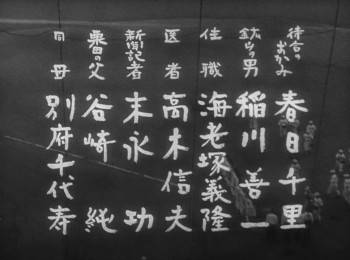 待合のおかみ 春日千里
鉱山の男 稲川善一
住職 海老塚義隆
医者 高木信夫
新聞記者 末永功
粟田の父 谷崎純
同母 別府千代寿